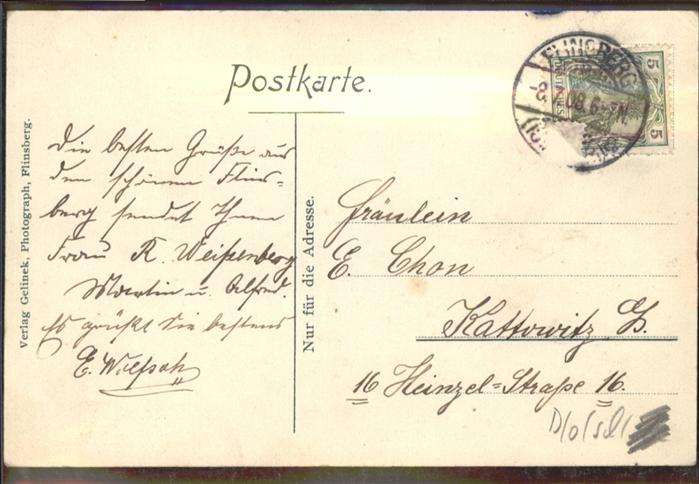 Postkarte.
Die besten Grüße aus
dem schönen Flins-
berg sendet Ihnen
Frau R. Weißenberg
Martin u. Alfred.
Es grüßt Sie bestens
E.
Verlag Gelinek, Photograph, Flinsberg.
Nur für die Adresse.
FLINSBERG
08. 6-7N.
5
5
Fräulein
E. Chon
Kattowitz O/S.
16 Heinzel-Straße 16.